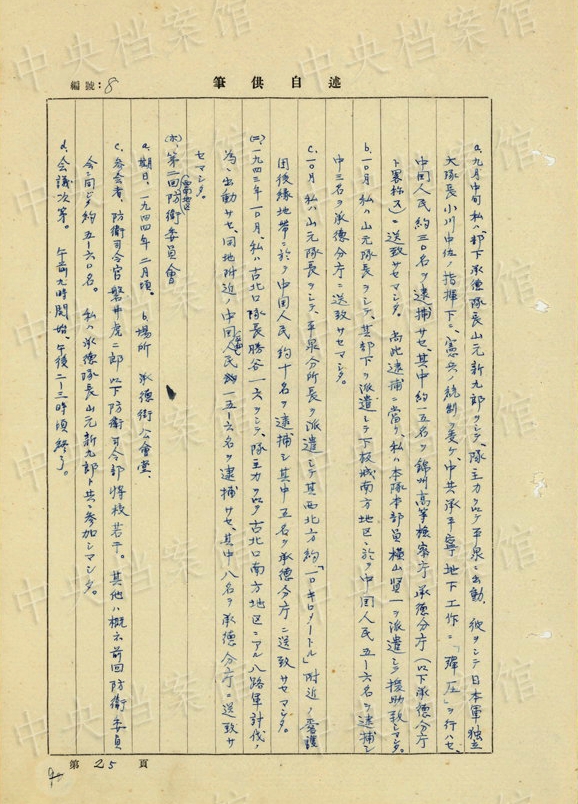 筆供自述
編號：8
a.九月中旬私ハ部下承德隊長山元新九郎ヲシテ、隊主力ヲ以テ平泉ニ出動、彼ヲシテ日本軍独立
大隊長小川中佐ノ指揮下ニ、憲兵ノ統制ヲ委ケ、中共承平寧地下工作ニ「弾圧」ヲ行ハセ、
中国人民約三〇名ヲ逮捕サセ、其中約一五名ヲ錦州高等検察庁承德分庁（以下承德分庁
ト畧称ス）ニ送致サセマシタ。尚此逮捕ニ當リ、私ハ本隊本部員横山賢一ヲ派遣シテ援助致シマシタ。
b.一〇月私ハ山元隊長ヲシテ、其部下ヲ派遣シテ下板城南方地区ニ於テ中国人民五−六名ヲ逮捕シ
中三名ヲ承德分庁ニ送致サセマシタ。
c.一〇月、私ハ山元隊長ヲシテ、平泉分所長ヲ派遣シテ其西北方約「一〇キロメートル」附近ノ
囯後縁地帯ニ於テ中国人民約十名ヲ逮捕シ其中五名ヲ承德分庁ニ送致サセマシタ。
(三)一九四三年一〇月、私ハ古北口隊長勝谷一六ヲシテ、隊主力ヲ以テ古北口南方地区ニアル八路軍討伐ノ
為ニ出動サセ、同地附近ノ中国人民一五−六名ヲ逮捕サセ、其中八名ヲ承德分庁ニ送致サ
セマシタ。
(六)、第二回防衛委員會
a.期日、一九四四年二月頃。 b.場所 承德街公會堂、
c.参会者、防衛司令官磐井虎二郎以下防衛司令部将校若干。其他ハ概ネ前回防衛委員
会ニ同ジク約五−六〇名。 私ハ承德隊長山元新九郎ト共ニ参加シマシタ。
d.会議次第。 午前九時開始、午後二−三時頃終了。
第25頁
中央档案馆